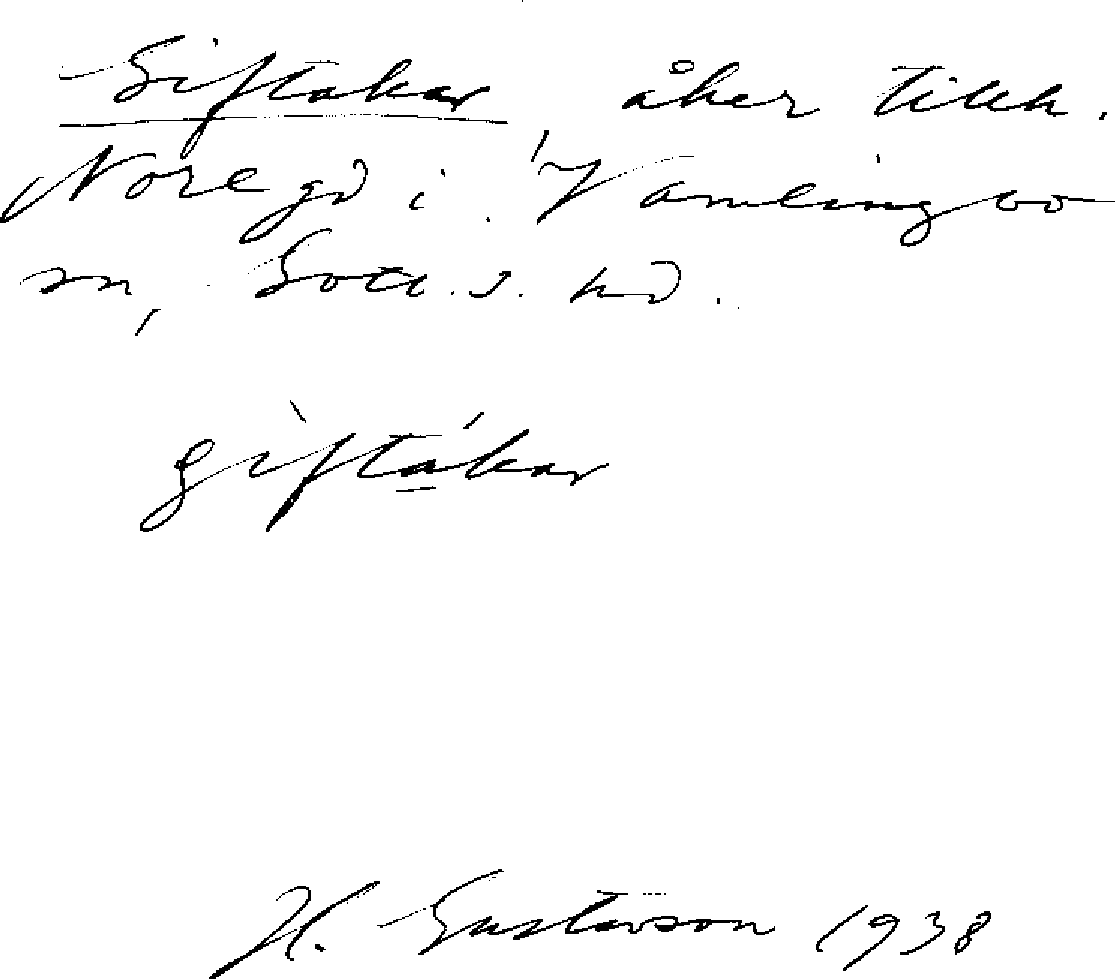 Giftakar, åker tillh.
Nore gd i Vamlingbo
sn, Gotl. s. hd.
gìftákar
H. Gustavson 1938